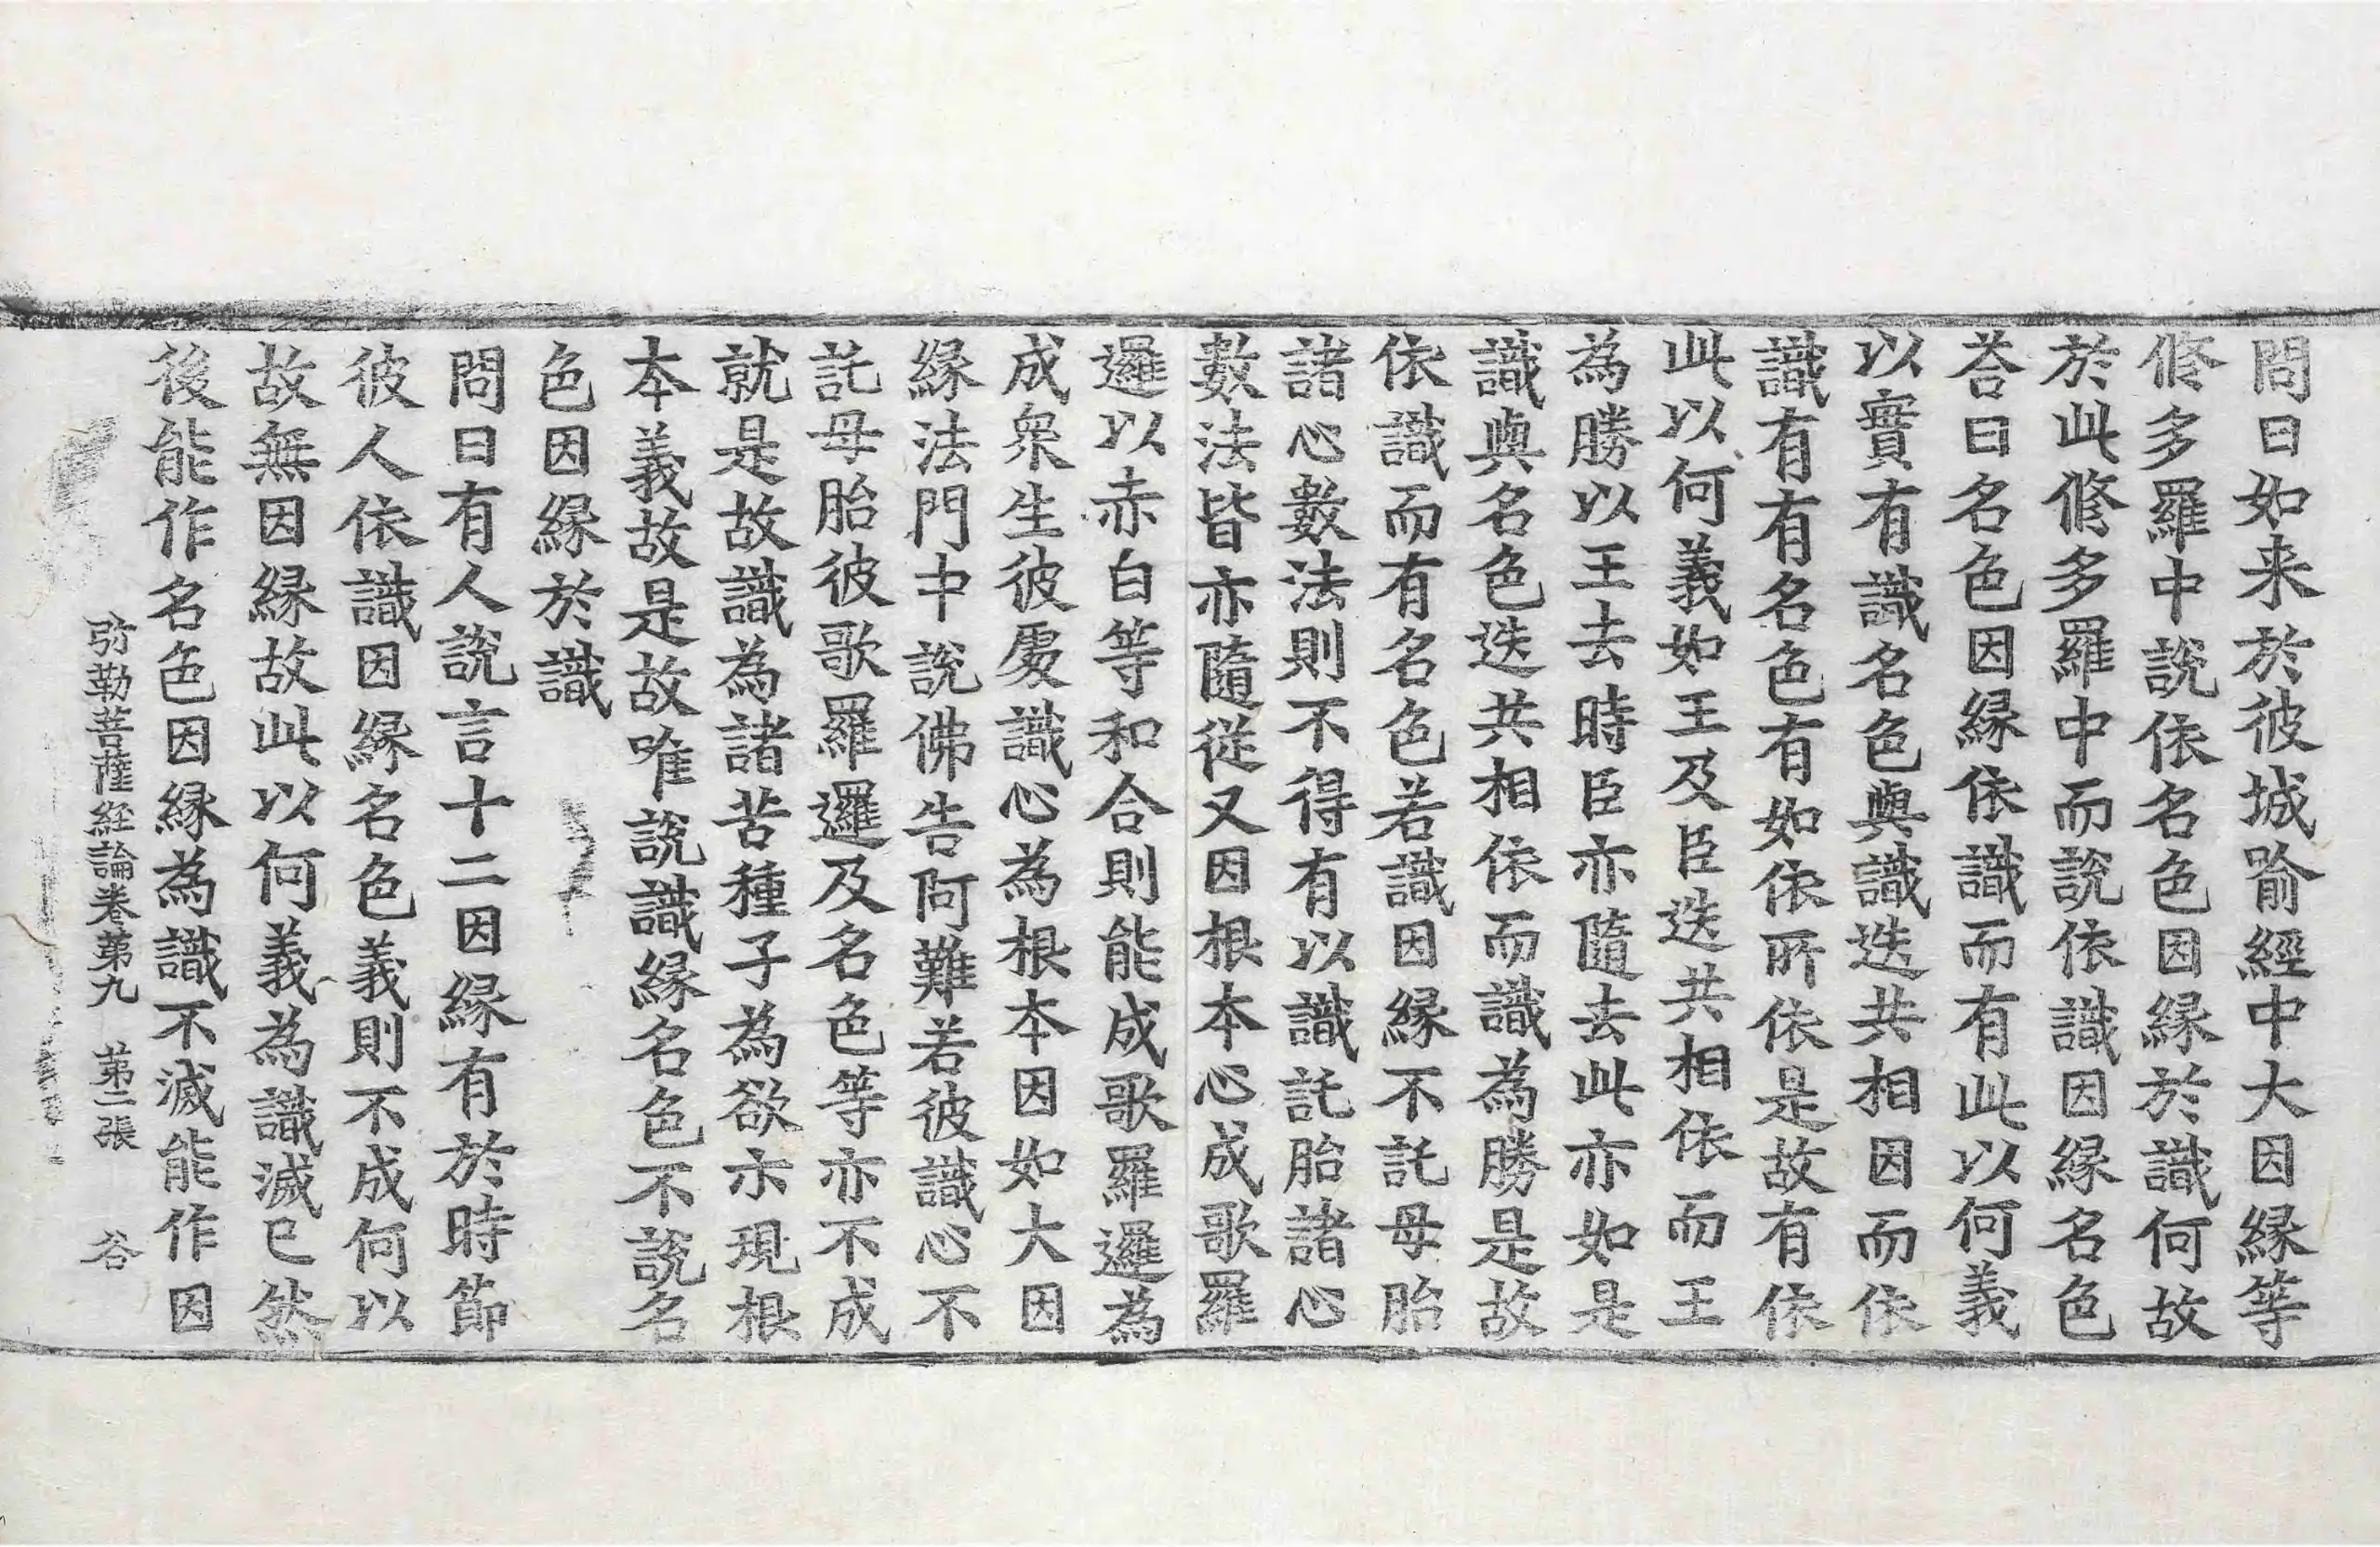 問曰如来於彼城喻經中大因縁等
修多羅中說依名色因縁於識何故
於此修多羅中而說依識因縁名色
荅曰名色因縁依識而有此以何義
以實有識名色與識迭共相因而依
識有有名色有如依所依是故有依
此以何義如王及臣迭共相依而王
為勝以王去時臣亦隨去此亦如是
識與名色迭共相依而識為勝是故
依識而有名色若識因縁不託母胎
諸心數法則不得有以識託胎諸心
數法皆亦隨從又因根本心成歌羅
邏以赤白等和合則能成歌羅邏為
成衆生彼處識心為根本因如大因
縁法門中說佛告阿難若彼識心不
託母胎彼歌羅邏及名色等亦不成
就是故識為諸苦種子為欲示現根
本義故是故唯說識縁名色不說名
色因縁於識
問曰有人說言十二因縁有於時節
彼人依識因縁名色義則不成何以
故無因縁故此以何義為識滅已然
後能作名色因縁為識不滅能作因
弥勒菩薩経論卷第九　第二張　谷